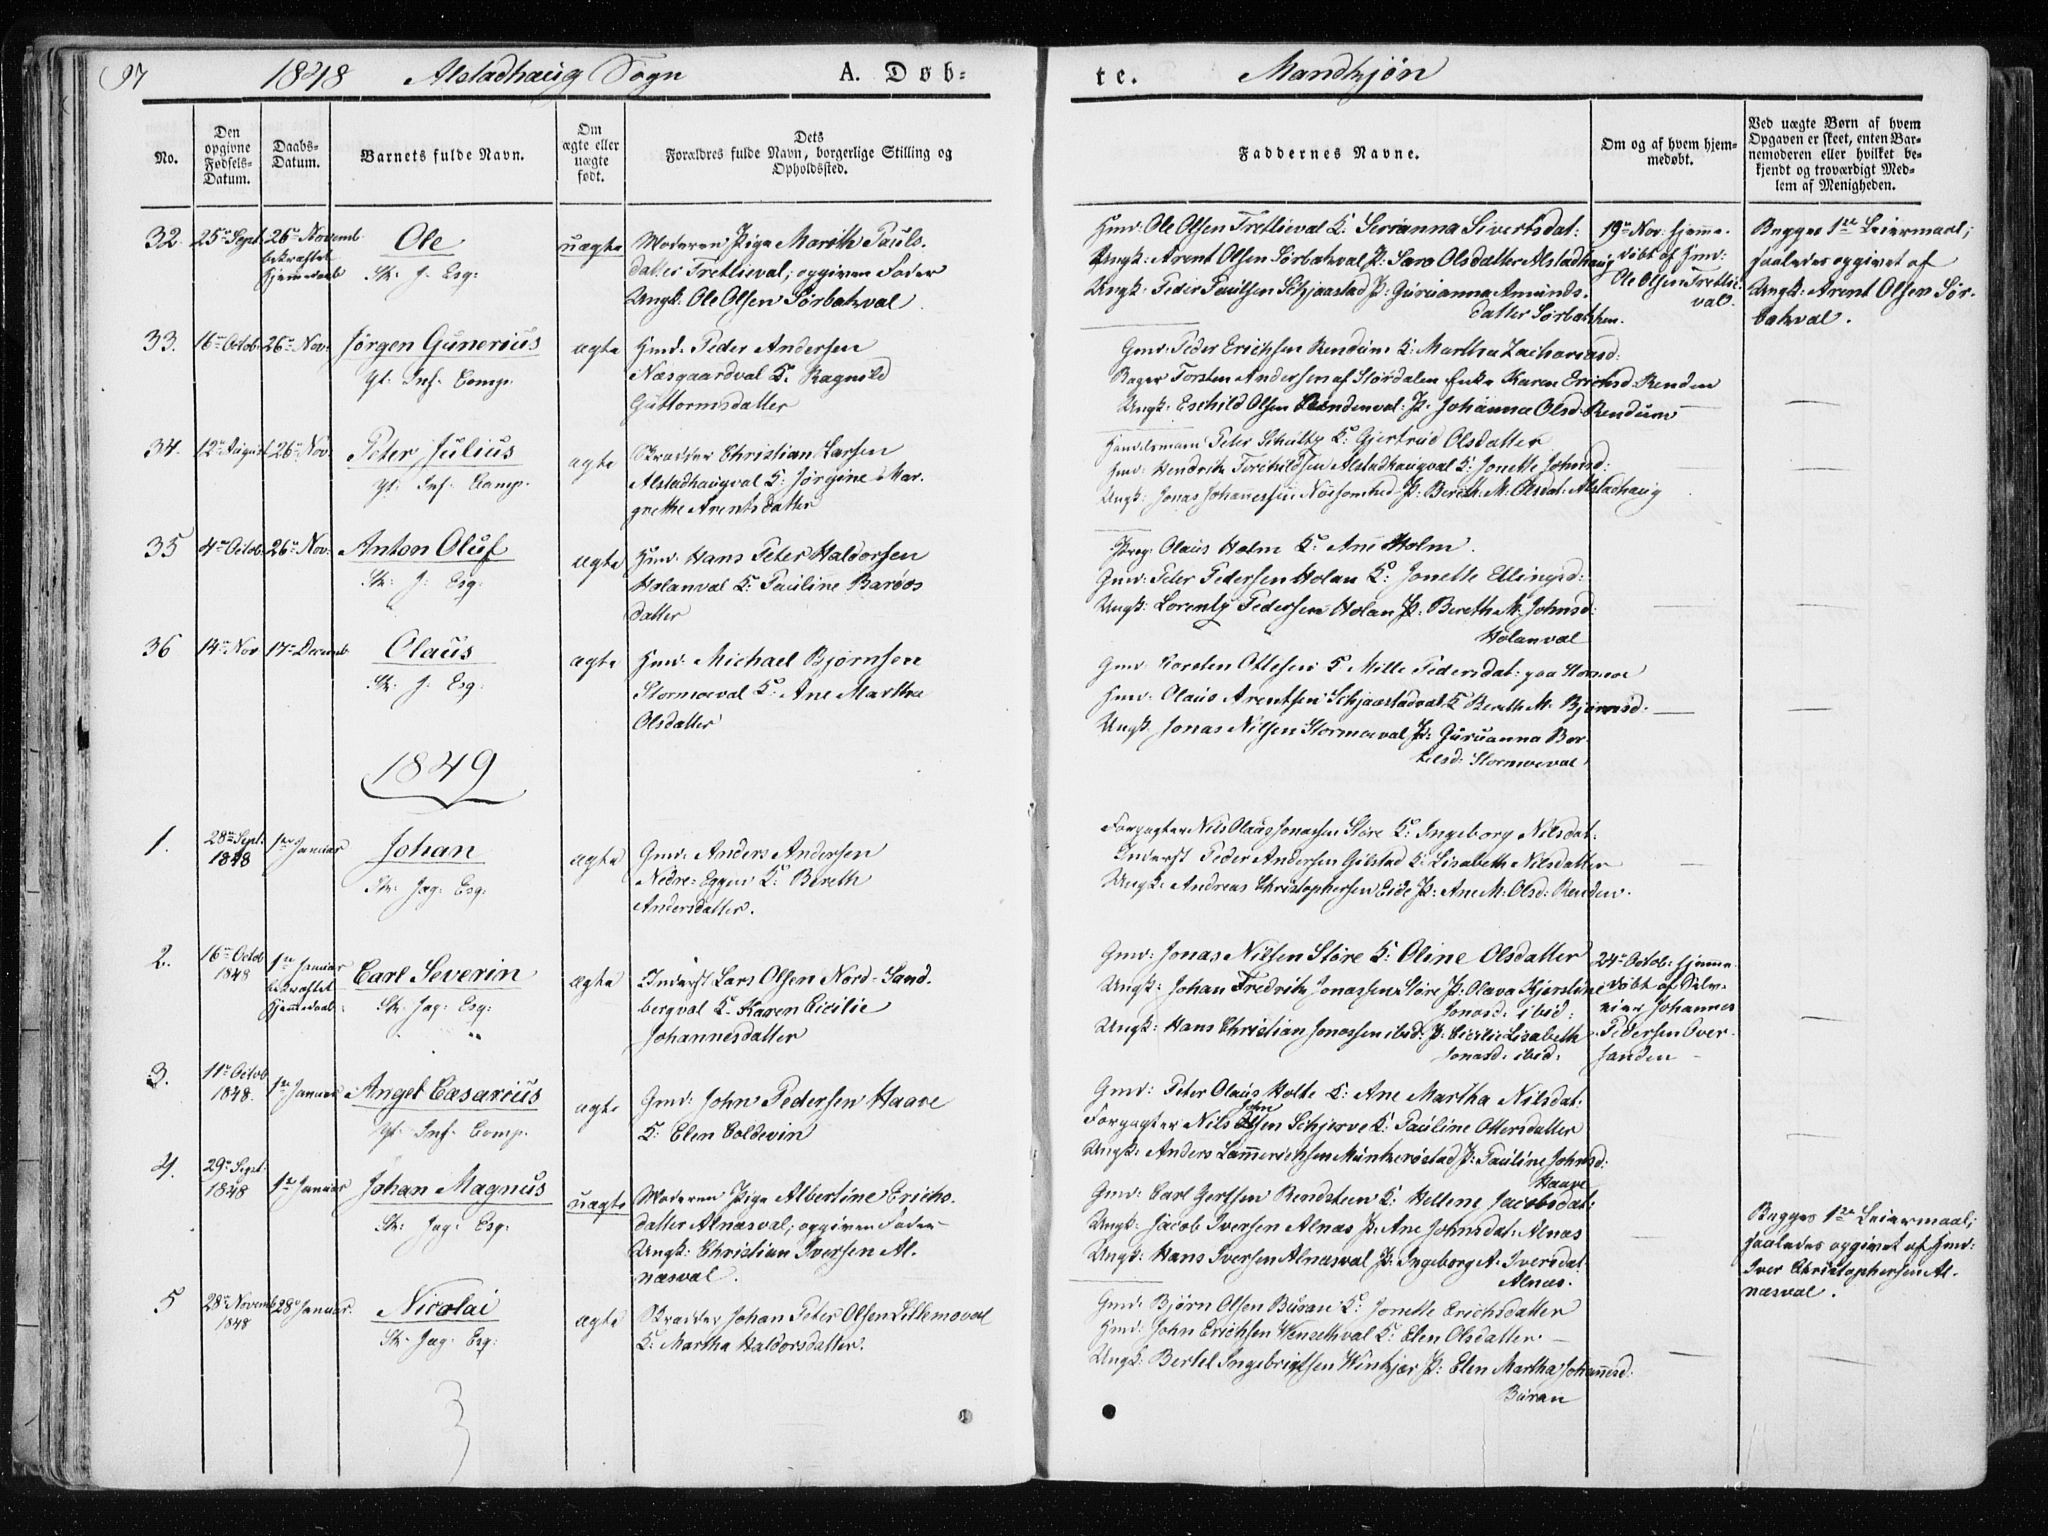 97 1848 Alstadhaug Sogn A. Døb- te. Mandkjøn
No.
Den opgivne Fødsels-Datum.
Daabs-Datum.
Barnets fulde Navn.
Om ægte eller uægte født.
Dets Forældres fulde Navn, borgerlige Stilling og Opholdssted.
Faddernes Navne.
Om og af hvem hjemmedøbt.
Ved uægte Børn af hvem Opgaven er skeet, enten Barnemoderen eller hvilket bekjendt og troværdigt Medlem af Menigheden.
32. 25de Sept. 26de Novemb. bekræftet Hjemmedaab
Ole
Sk: J: Esq:
uægte
Moderen Pige Marith Pauls-
datter Tretlieval; opgiven Fader
Ungk: Ole Olsen Sørbakval.
Hmd: Ole Olsen Tretlieval K: Serianna Sivertsdat:
Ungk: Arent Olsen Sørbakval P: Sara Olsdatter Alstadhaug
Ungk: Peder Paulsen Schjaastad P: Gurianna Amunds-
datter Sørbakken.
19de Nov: hjemme-
døbt af Hmd:
Ole Olsen Tretlie-
val.
Begges 1ste Leiermaal;
saaledes opgivet af
Ungk: Arent Olsen Sør-
bakval.
33. 16de Octob. 26de Nov:
Jørgen Gunerius
Yt: Inf: Comp.
ægte
Hmd: Peder Andersen
Næsgaardval K: Ragnild
Guttormsdatter
Gmd: Peder Erichsen Rendum K: Martha Zachariasd:
Bager Torsten Andersen af Størdalen Enke Karen Erichsd: Renden
Ungk: Eschild Olsen Rendenval P: Johanna Olsd: Rendum
34. 12te August 26de Nov:
Peter Julius
Yt: Inf: Comp.
ægte
Skrædder Christian Larsen
Alstadhaugval K: Jørgine Mar-
grethe Arentsdatter
Handelsmann Peter Schultz K: Gjertrud Olsdatter
Hmd: Hendrik Torchildsen Alstadhaugval K: Jonette Johnsd:
Ungk: Jonas Johannessen P: Bereth M. Olsdat: Alstadhaug
35 4de Octob. 26de Nov:
Anton Oluf
Sk: J: Esq:
ægte
Hmd: Hans Peter Haldorsen
Holanval K: Pauline Baroos
datter
Olaus Holm K: Ane Holm.
Gmd: Peter Pedersen Holan K: Jonette Ellingsd:
Ungk: Lorentz Pedersen Holan P: Bereth M. Johnsd:
Holanval
36 14de Nov 17de Decemb
Olaus
Sk: J: Esq:
ægte
Hmd: Michael Bjørnsen
Stormoeval K: Ane Martha
Olsdatter
Gmd: Torsten Ottesen K: Mille Pedersdat: paa Stormoe
Hmd: Olaus Arentsen Schjaastadval K: Bereth M. Bjørnsd:
Ungk: Jonas Nilsen Stormoeval P: Gurianna Ber-
telsd: Stormoeval
1849
1. 28de Sept: 1848 1ste Januar
Johan
Sk: Jag: Esq:
ægte
Gmd: Anders Andersen
Nedre-Eggen K: Bereth
Andersdatter.
Forpagter Nils Olaus Jonassen Støre K: Ingeborg Nilsdat:
Inderst Peder Andersen Gilstad K: Lisabeth Nilsdatter
Ungk: Andreas Christophersen Eide P: Ane M. Olsd: Renden.
2. 16de Octob 1848 1ste Januar bekræftet Hjemmedaab
Carl Severin
Sk: Jag: Esq:
ægte
Inderst Lars Olsen Nord-Sand-
bergval K: Karen Cicilie
Johannesdatter
Gmd: Jonas Nilsen Støre K: Oline Olsdatter
Ungk: Johan Fredrik Jonassen Støre P: Olava Kjerstine
Jonasd: ibid:
Ungk: Hans Christian Jonassen ibid: P: Cicilie Lisabeth
Jonasd: ibid:
24de Octob: hjemme-
døbt af Selv-
eier Johannes
Pedersen Over-
sanden
3. 11te Octob 1848. 1ste Januar
Angel Cæsarius
Yt: Inf: Comp.
ægte
Gmd: John Pedersen Haave
K: Elen Coldevin
Gmd: Peter Olaus Holte K: Ane Martha Nilsdat:
Forpagter Nils John Olsen Schjerve K: Pauline Ottersdatter
Ungk: Anders Lammerichsen Munkerøstad P: Pauline Johnsd:
Haave
4. 29de Sept. 1848 1ste Januar
Johan Magnus
Sk: Jag: Esq:
uægte
Moderen Pige Albertine Erichs-
datter Alnæsval; opgiven Fader
Ungk: Christian Iversen Al-
næsval.
Gmd: Carl Gertsen Rendsteen K: Hellene Jacobsdat:
Ungk: Jacob Iversen Alnæs P: Ane Johnsdat: Alnæs
Ungk: Hans Iversen Alnæsval P: Ingeborg A. Iversdat:
Alnæs.
Begges 1ste Leiermaal;
saaledes opgivet af Hmd:
Iver Christophersen Al-
næsval.
5 28de Novemb 1848 28de Januar.
Nicolai
Sk: Jag: Esq:
ægte
Skrædder Johan Peter Olsen Lillemoval
K: Martha Haldorsdatter.
Gmd: Bjørn Olsen Buran K: Jonette Erichsdatter
Hmd: John Erichsen Wensethval K: Elen Olsdatter.
Ungk: Bertel Ingebrigtsen Winkjær P: Elen Martha Johannesd:
Buran
3